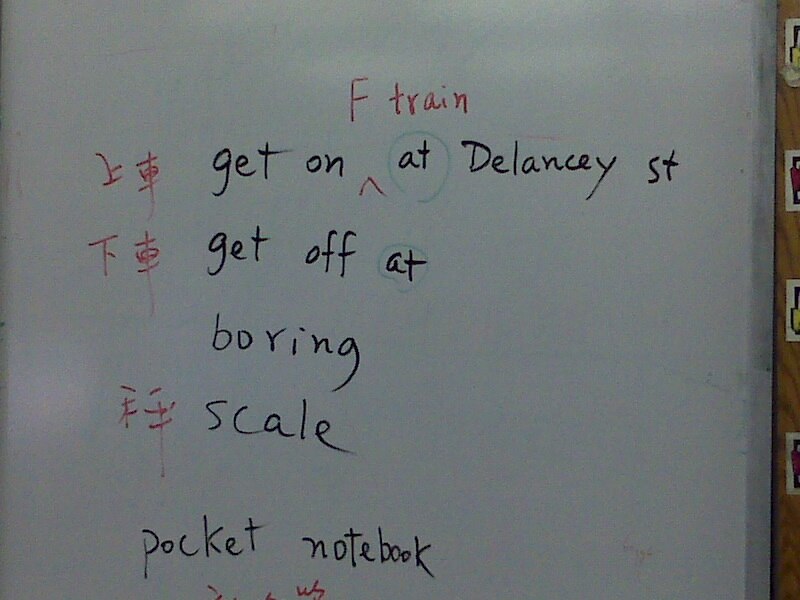 F train
上車 get on ^ at Delancey st
下車 get off at
boring
秤 scale
pocket notebook